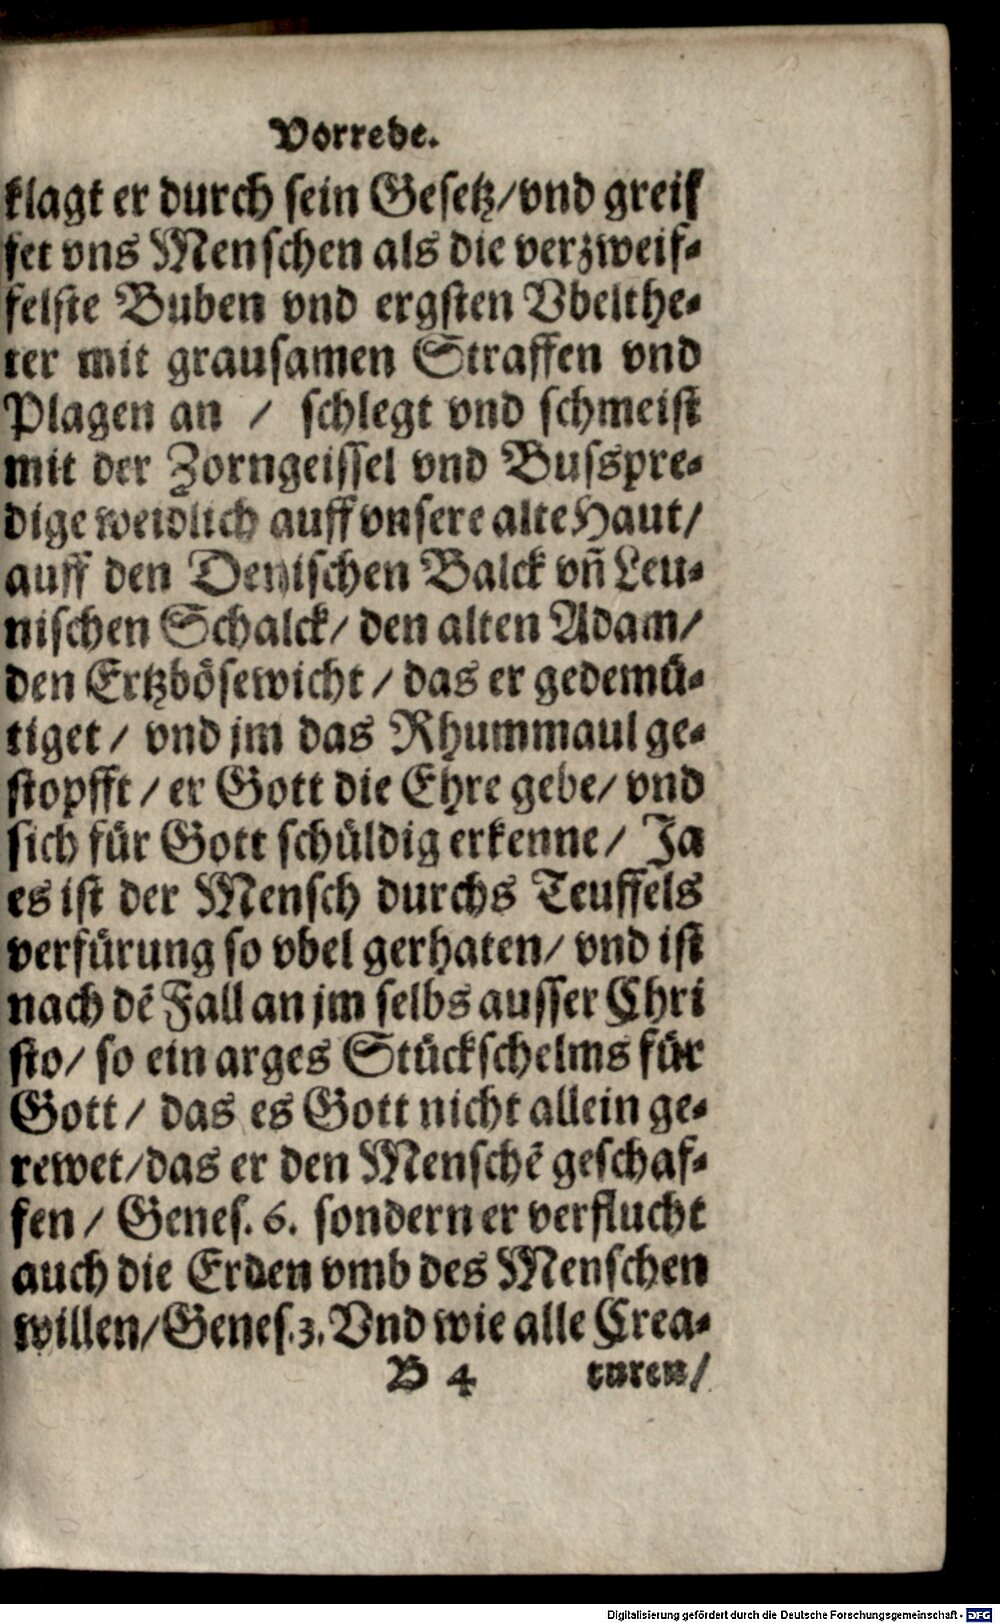 Vorrede.
klagt er durch sein Gesetz/vnd greif
fet vns Menschen als die verzweif-
felste Buben vnd ergsten Vbelthe-
ter mit grausamen Straffen vnd
Plagen an / schlegt vnd schmeist
mit der Zorngeissel vnd Busspre-
dige weidlich auff vnsere alte Haut/
auff den Denischen Balck vñ Leu-
nischen Schalck/ den alten Adam/
den Ertzbösewicht / das er gedemü-
tiget / vnd jm das Rhummaul ge-
stopfft / er Gott die Ehre gebe/ vnd
sich für Gott schüldig erkenne/ Ja
es ist der Mensch durchs Teuffels
verfürung so vbel gerhaten/ vnd ist
nach dẽ Fall an jm selbs ausser Chri
sto/ so ein arges Stückschelms für
Gott / das es Gott nicht allein ge-
rewet/das er den Menschẽ geschaf-
fen / Genes. 6. sondern er verflucht
auch die Erden vmb des Menschen
willen/Genes.3. Vnd wie alle Crea-
B 4 turen/
Digitalisierung gefördert durch die Deutsche Forschungsgemeinschaft - DFG